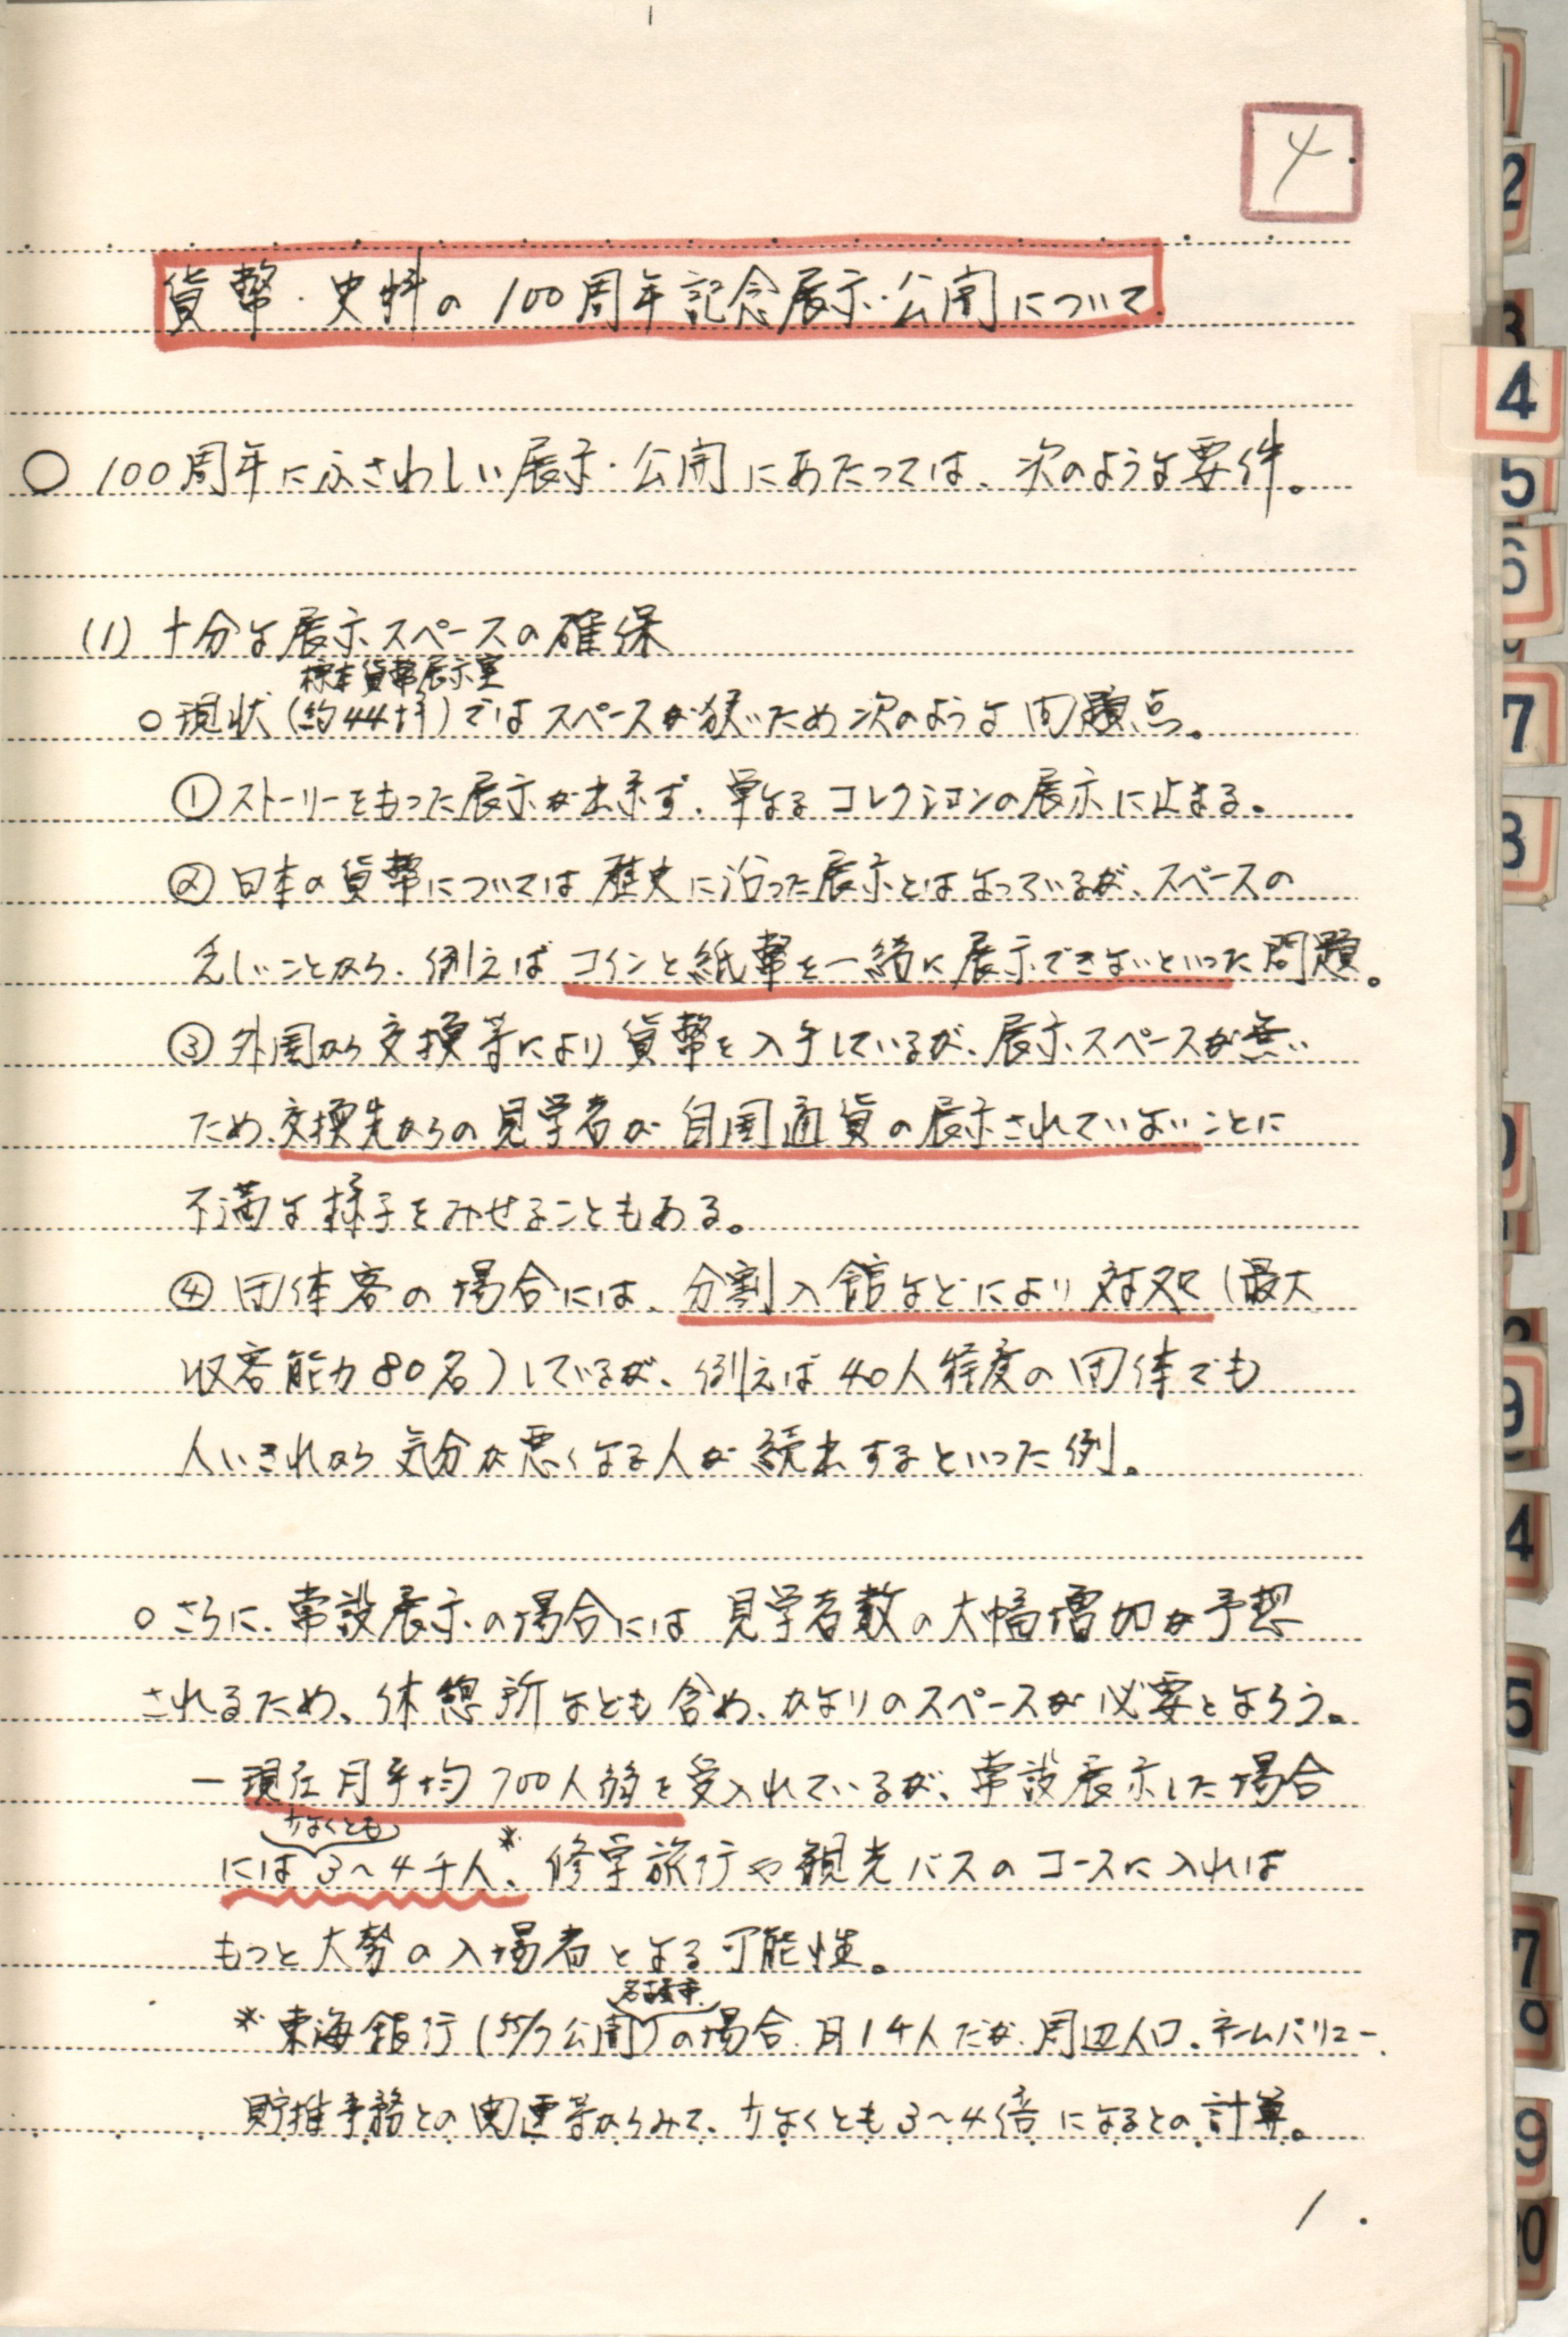 4
貨幣・史料の100周年記念展示・公開について
○ 100周年にふさわしい展示・公開にあたっては、次のような要件。
(1) 十分な展示スペースの確保
標本貨幣展示室
○現状(約44坪)ではスペースが狭いため次のような問題点。
①ストーリーをもった展示が出来ず、単なるコレクションの展示に止まる。
②日本の貨幣については歴史に沿った展示とはなっているが、スペースの
乏しいことから、例えばコインと紙幣を一緒に展示できないといった問題。
③外国から交換等により貨幣を入手しているが、展示スペースが無い
ため、交換先からの見学者が自国通貨の展示されていないことに
不満な様子をみせることもある。
④団体客の場合には、分割入館などにより対処(最大
収容能力80名)しているが、例えば40人程度の団体でも
人いきれから気分が悪くなる人が続出するといった例。
○さらに、常設展示の場合には見学者数の大幅増加が予想
されるため、休憩所なども含め、かなりのスペースが必要となろう。
―現在月平均700人弱を受入れているが、常設展示した場合
少なくとも
には3〜4千人*、修学旅行や観光バスのコースに入れば
もっと大勢の入場者となる可能性。
名古屋市
*東海銀行(55/7公開)の場合、月1千人だが、周辺人口、ネームバリュー、
貯推事務との関連等からみて、少なくとも3〜4倍になるとの計算。
1.
2
3
4
5
6
7
8
9
4
5
7
9